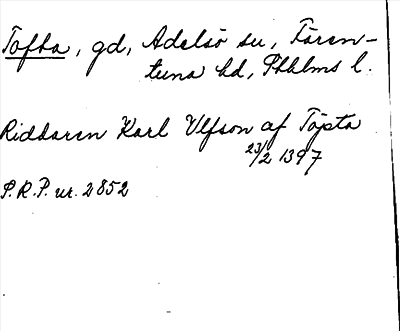 Tofta, gd, Adelsö sn, Fären-
tuna hd, Sthlms l.
Riddaren Karl Ulfson af Töpta
23/2 1397
P.R.P. nr. 2852